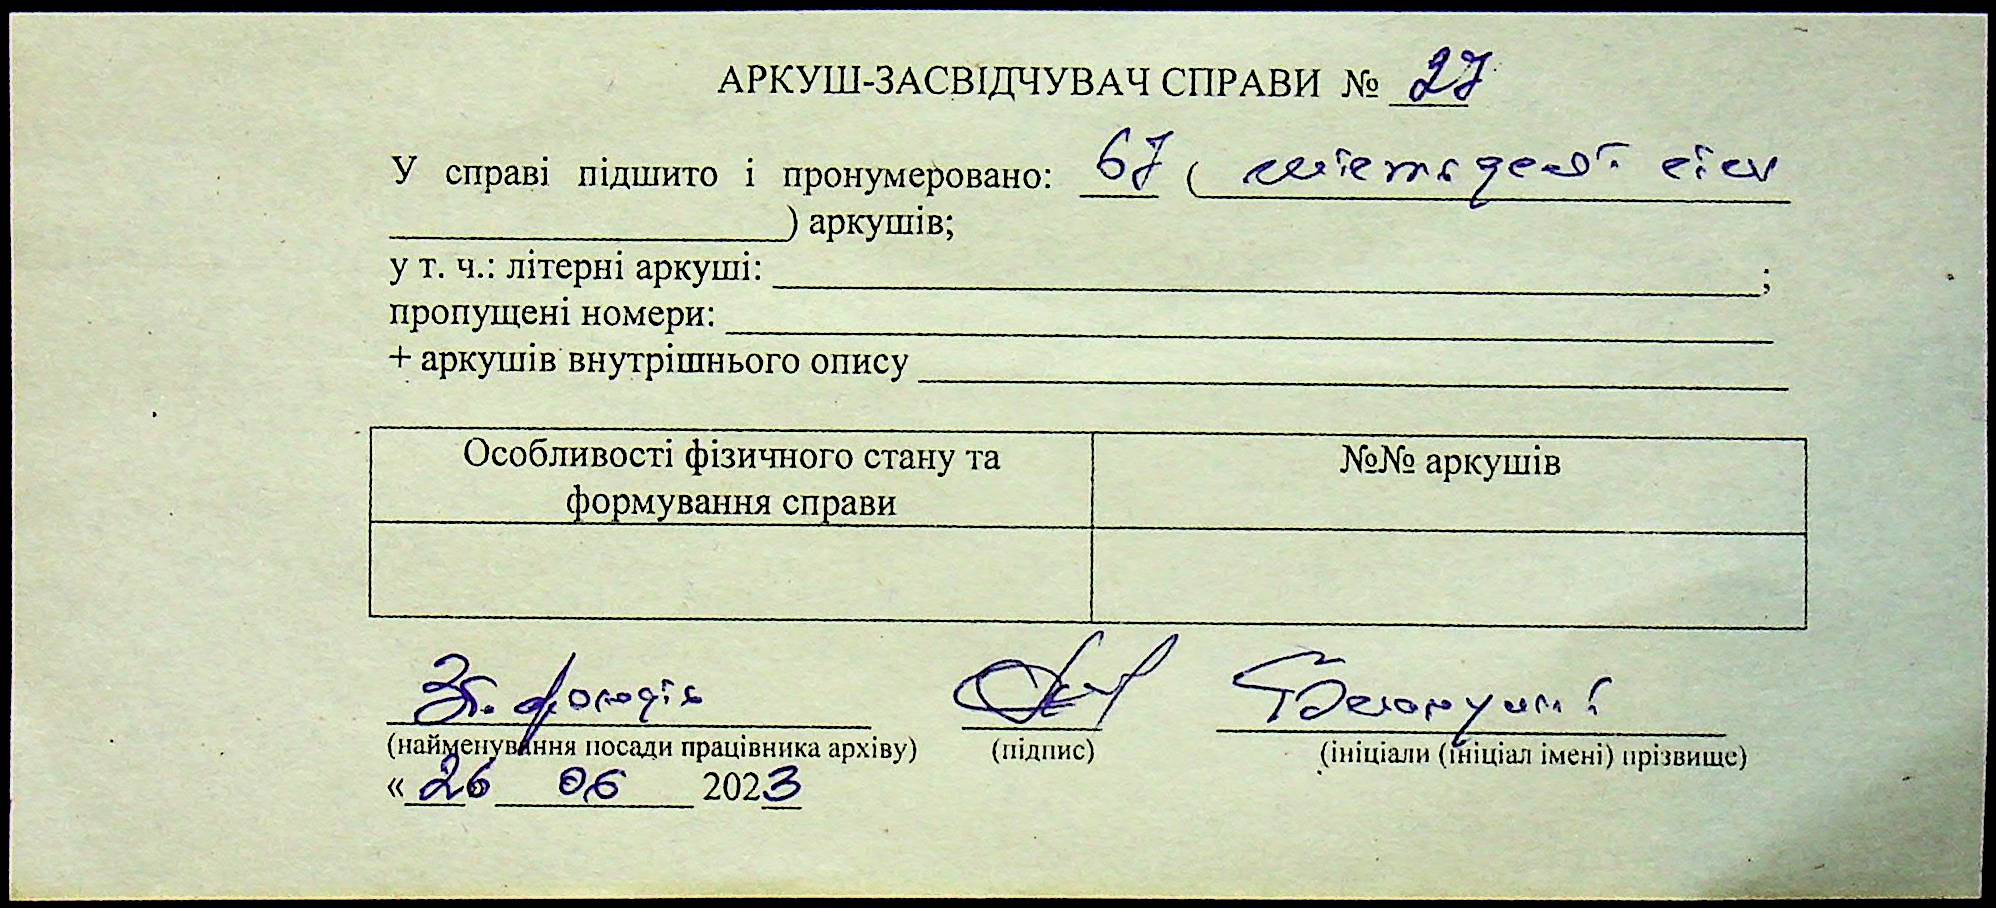 АРКУШ-ЗАСВІДЧУВАЧ СПРАВИ № 27
У справі підшито і пронумеровано: 67 ( шістдесят сім
) аркушів;
у т. ч.: літерні аркуші: ;
пропущені номери:
+ аркушів внутрішнього опису
Особливості фізичного стану та формування справи
№№ аркушів
Зб. фондів
(найменування посади працівника архіву) (підпис) (ініціали (ініціал імені) прізвище)
«26 06 2023